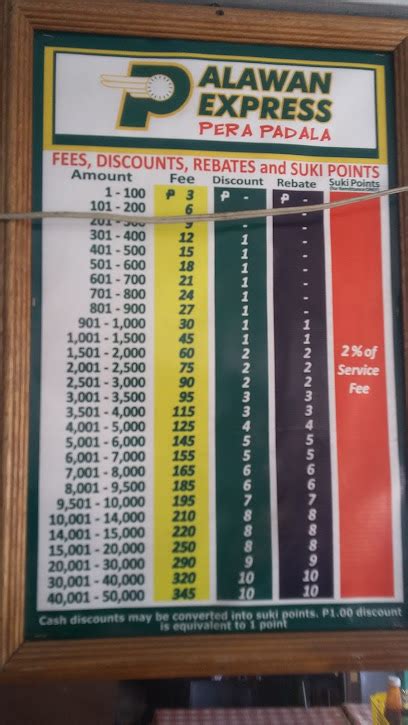 PALAWAN
EXPRESS
PERA PADALA
FEES, DISCOUNTS, REBATES and SUKI POINTS
Amount Fee Discount Rebate Suki Points
1 - 100 ₱ 3 ₱ - ₱ -
101 - 200 6
201 - 300 9 - -
301 - 400 12 1 -
401 - 500 15 1 -
501 - 600 18 1 -
601 - 700 21 1 -
701 - 800 24 1 -
801 - 900 27 1 -
901 - 1,000 30 1 1
1,001 - 1,500 45 1 1
1,501 - 2,000 60 2 2 2% of
2,001 - 2,500 75 2 2 Service
2,501 - 3,000 90 2 2 Fee
3,001 - 3,500 95 3 3
3,501 - 4,000 115 3 3
4,001 - 5,000 125 4 4
5,001 - 6,000 145 5 5
6,001 - 7,000 155 5 5
7,001 - 8,000 165 6 6
8,001 - 9,500 185 6 6
9,501 - 10,000 195 7 7
10,001 - 14,000 210 8 8
14,001 - 15,000 220 8 8
15,001 - 20,000 250 8 8
20,001 - 30,000 290 9 9
30,001 - 40,000 320 10 10
40,001 - 50,000 345 10 10
Cash discounts may be converted into suki points. P1.00 discount
is equivalent to 1 point